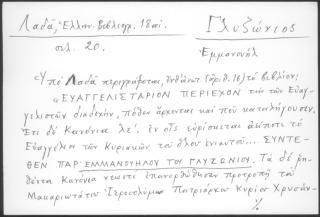 Λαδᾶ, Ἑλλην. Βιβλιογρ. 18 αἰ.
σελ. 20.
Γλυζώνιος
Ἐμμανουήλ
Ὑπό Λαδᾶ περιγράφεται, (ἀριθ. 16) τό βιβλίον:
«ΕΥΑΓΓΕΛΙΣΤΑΡΙΟΝ ΠΕΡΙΕΧΟΝ τήν τῶν Εὐαγ-
γελιστῶν διαδοχήν, πόθεν ἄρχονται καί ποῦ καταλήγουσιν.
Ἔτι δέ Κανόνια λε΄. ἐν οἷς εὑρίσκεται
Εὐαγγέλιον τῶν Κυριακῶν τοῦ ὅλου ἐνιαυτοῦ.... ΣΥΝΤΕ-
ΘΕΝ ΠΑΡ' ΕΜΜΑΝΟΥΗΛΟΥ ΤΟΥ ΓΛΥΖΩΝΙΟΥ. Τά δέ ῥη-
θέντα Κανόνια νεωστί ἐπανορθώθησαν προτροπῇ τοῦ
Μακαριωτάτου Ἱεροσολύμων Πατριάρχου Κυρίου Χρυσάν-
%